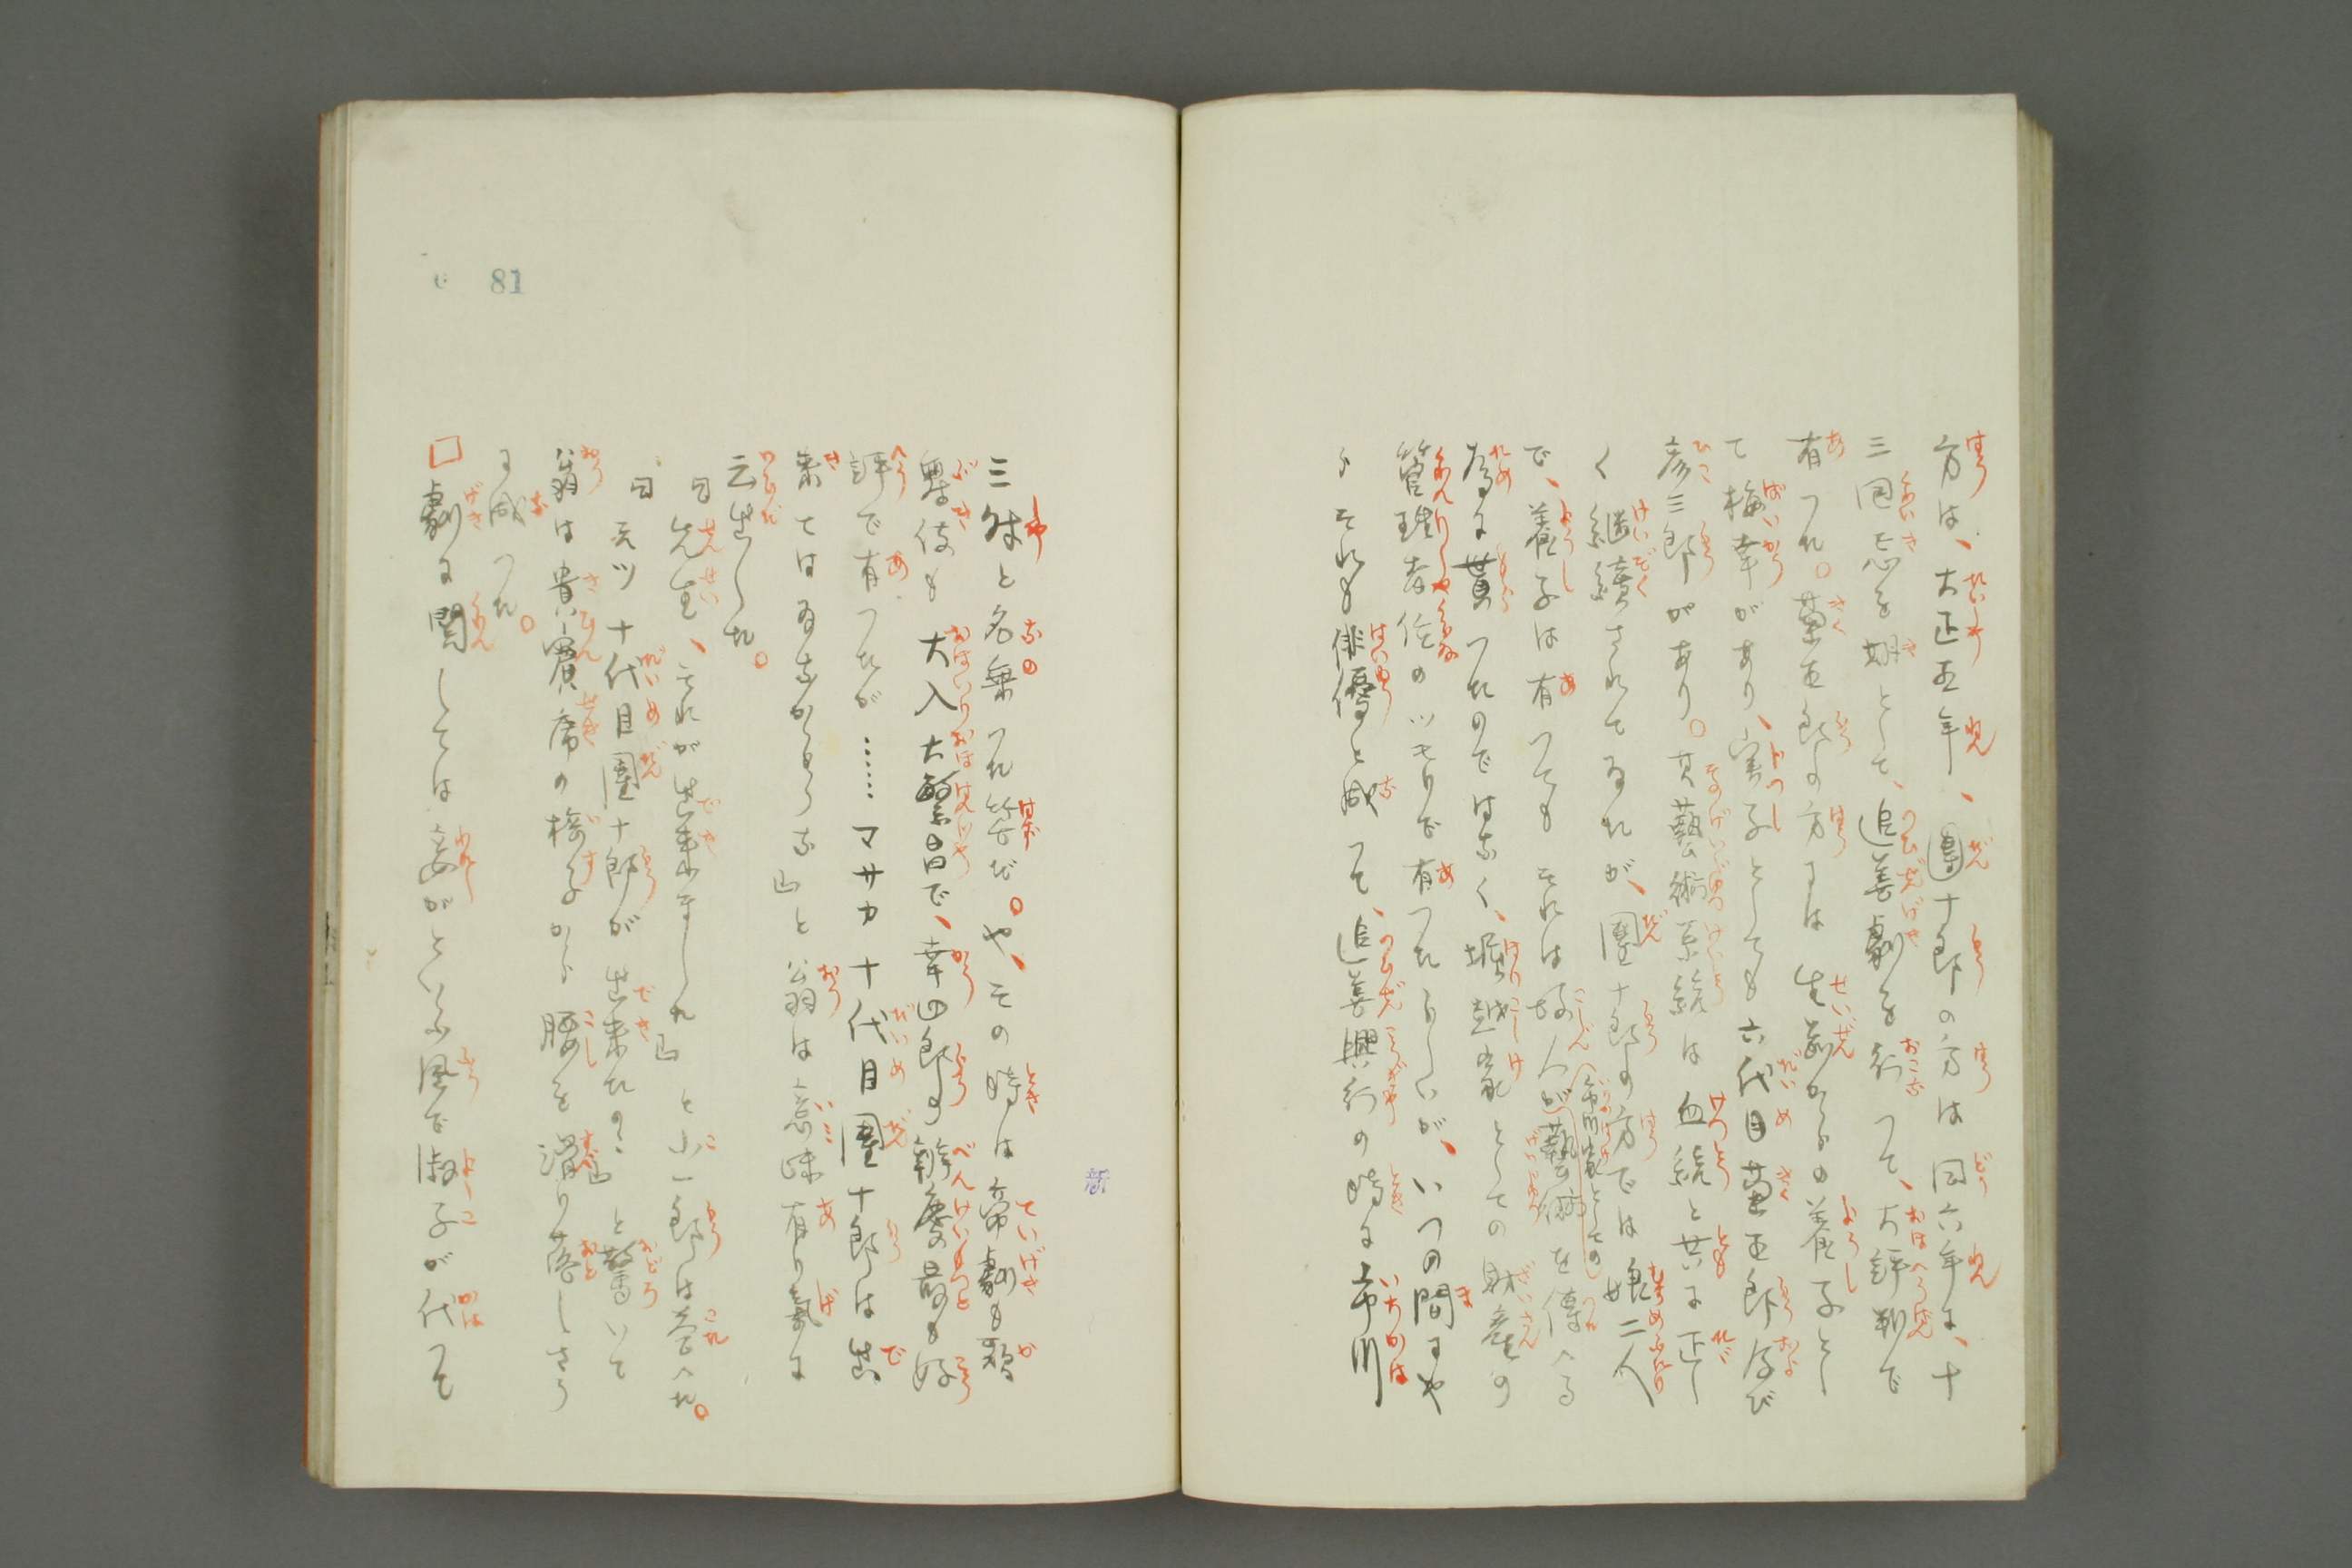 方は、大正五年、團十郎の方は同六年に、十
三囘忌を期として、追善劇を行つて、大評判で
有つた。菊五郎の方には生前からの養子とし
て梅幸があり、実子としても六代目菊五郎及び
彦三郎があり。其藝術系統は血統と共に正し
く継續されてゐたが、團十郎の方では娘二人
で、養子は有つてもそれは故人が(市川家としての)藝術を傳へる
為に貰つたのでは無く、堀越家としての財産の
管理者位のツモリで有つたらしいが、いつの間にや
らそれも俳優と成つて、追善興行の時に市川
三舛と名乗つた筈だ。や、その時は帝劇も歌
舞伎も大入大繁昌で、幸四郎の辨慶最も好
評で有つたが……マサカ十代目團十郎は出
来てはゐなからうな』と翁は意味有り氣に
云出した。
『先生、それが出来ました』と小一郎は答へた。
『エツ十代目團十郎が出来たの』と驚いて
翁は貴賓席の椅子から腰を滑り落しさう
に成つた。
劇に関しては妾がといふ風で淑子が代つて
81